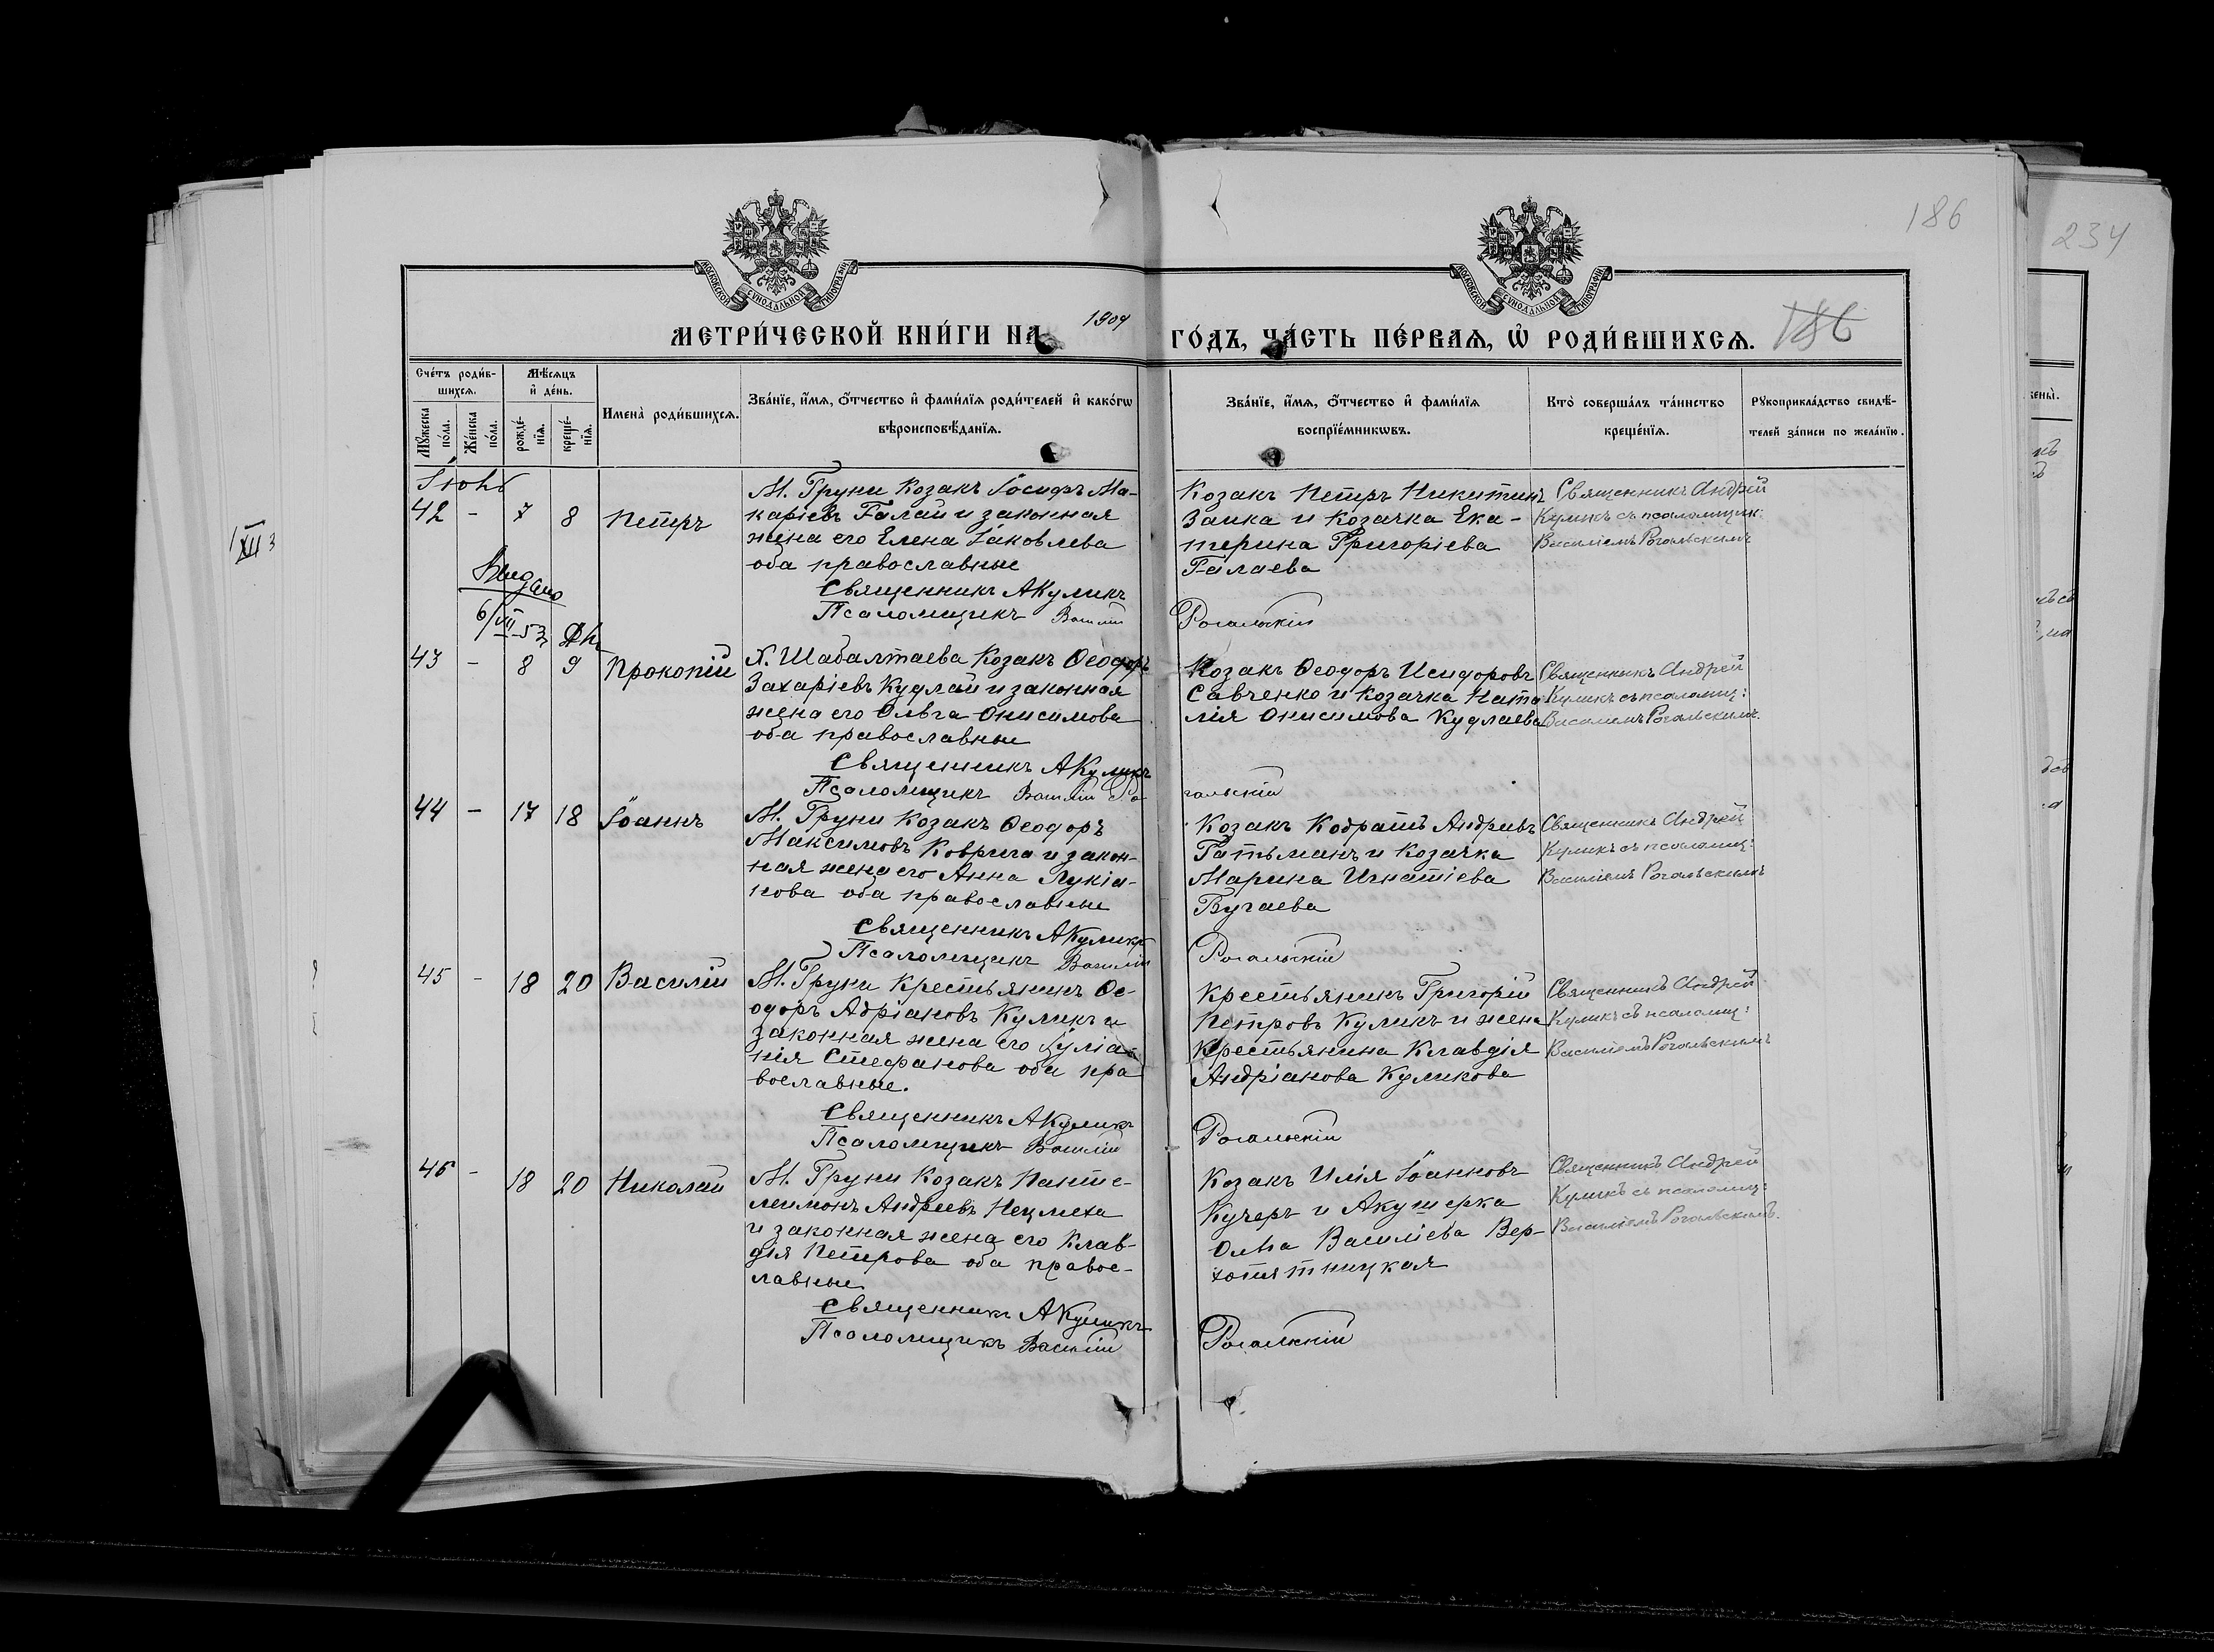 186
234
МОСКОВСКОЙ СУНОДАЛЬНОЙ ТИПОГРАФІИ
МОСКОВСКОЙ СУНОДАЛЬНОЙ ТИПОГРАФІИ
МЕТРИ́ЧЕСКОЙ КНИ́ГИ НА 1904 ГО́ДЪ, ЧА́СТЬ ПЕ́РВАѦ, Ѡ҆ РОДИ́ВШИХСѦ. 186
Сче́тъ роди́в-
шихсѧ.
Мꙋжеска по́ла.
Же́нска по́ла.
Мѣ́сѧцъ
и҆ де́нь.
рожде́-
нїѧ.
креще́-
нїѧ.
Имена̀ роди́вшихсѧ.
Зва́нїе, и҆́мѧ, ѻ҆́тчество и҆ фами́лїѧ роди́телей и҆ како́гѡ
вѣроисповѣ́данїѧ.
Зва́нїе, и҆́мѧ, ѻ҆́тчество и҆ фами́лїѧ
воспрїе́мникѡвъ.
Кто̀ соверша́лъ та́инство
креще́нїѧ.
Рꙋкоприкла́дство свидѣ́-
телей за́писи по жела́нїю.
Іюнь
42 - 7 8 Петръ
М. Груни Козакъ Іосифъ Ма-
каріевъ Галай и законная
жена его Елена Іаковлева
оба православные
Священникъ АКуликъ
Псаломщикъ Василій Рогальскій
Козакъ Петръ Никитинъ
Заика и Козачка Ека-
терина Григоріева
Галаева
Священникъ Андрей
Куликъ съ псаломщик:
Василіемъ Рогальскимъ
Видано
6/VII-53
43 - 8 9 Прокопій
Х. Шабалтаева Козакъ Ѳеодоръ
Захаріевъ Кудлай и законная
жена его Ольга Онисимова
оба православные
Священникъ АКуликъ
Псаломщикъ Василій Рогальскій
Козакъ Ѳеодоръ Исидоровъ
Савченко и Козачка Ната
лія Онисимова Кудлаева
Священникъ Андрей
Куликъ съ псаломщ:
Василіемъ Рогальскимъ.
44 - 17 18 Іоаннъ
М. Груни Козакъ Ѳеодоръ
Максимовъ Коврига и закон-
ная жена его Анна Лукіа-
нова оба православные
Священникъ АКуликъ
Псаломщикъ Василій Рогальскій
Козакъ Кодратъ Андріевъ
Гатьманъ и Козачка
Марина Игнатіева
Бугаева
Священникъ Андрей
Куликъ съ псаломщ:
Василіемъ Рогальскимъ
45 - 18 20 Василій
М. Груни Крестьянинъ Ѳе-
одоръ Адріановъ Куликъ и
законная жена его Іуліа-
нія Стефанова оба пра
вославные.
Священникъ АКуликъ
Псаломщикъ Василій Рогальскій
Крестьянинъ Григорій
Петровъ Куликъ и жена
Крестьянина Клавдія
Андріанова Куликова
Священникъ Андрей
Куликъ съ псаломщ:
Василіемъ Рогальскимъ
46 - 18 20 Николай
М. Груни Козакъ Панте-
леимонъ Андреевъ Нецмеха
и законная жена его Клав-
дія Петрова оба правос-
лавные
Священникъ АКуликъ
Псаломщикъ Василій Рогальскій
Козакъ Илія Іоанновъ
Кучеръ и Акушерка
Ольга Василіева Вер-
хопятницкая
Священникъ Андрей
Куликъ съ псаломщ:
Василіемъ Рогальскимъ.